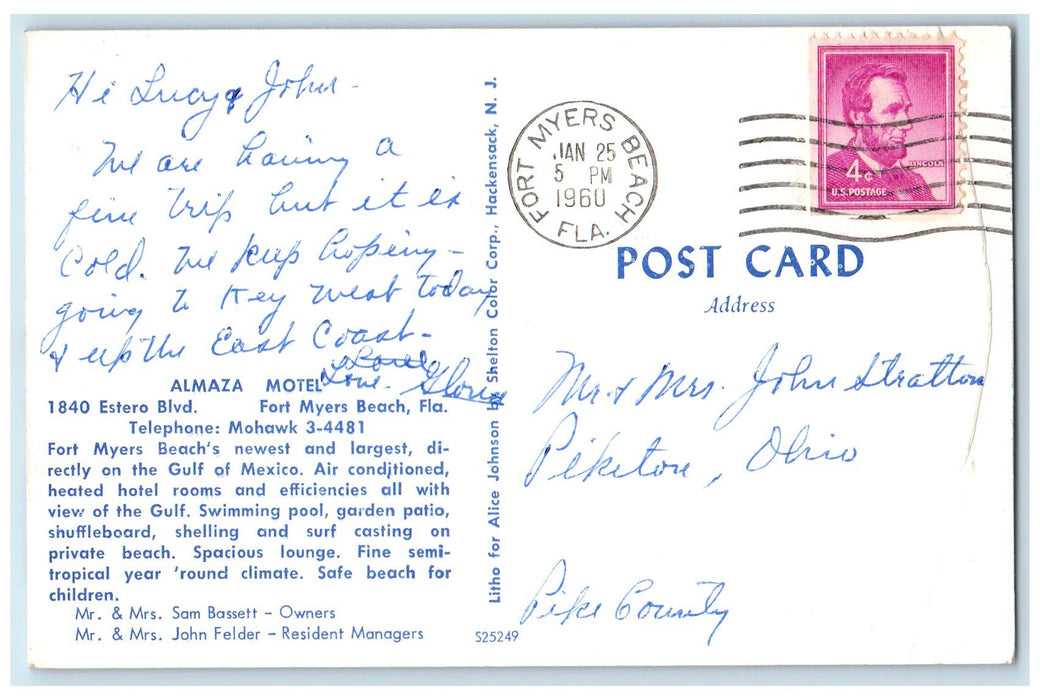 Hi Lucy & John -
We are having a
fine trip but it is
Cold. We keep hoping -
going to Key West today
& up the East Coast -
Love
Love - Gloria
ALMAZA MOTEL
1840 Estero Blvd. Fort Myers Beach, Fla.
Telephone: Mohawk 3-4481
Fort Myers Beach's newest and largest, di-
rectly on the Gulf of Mexico. Air conditioned,
heated hotel rooms and efficiencies all with
view of the Gulf. Swimming pool, garden patio,
shuffleboard, shelling and surf casting on
private beach. Spacious lounge. Fine semi-
tropical year 'round climate. Safe beach for
children.
Mr. & Mrs. Sam Bassett – Owners
Mr. & Mrs. John Felder – Resident Managers
S25249
Litho for Alice Johnson by Shelton Color Corp., Hackensack, N. J.
FORT MYERS BEACH
JAN 25
5 PM
1960
FLA.
LINCOLN
4¢
U.S. POSTAGE
POST CARD
Address
Mr. & Mrs. John Stratton
Piketon, Ohio
Pike County